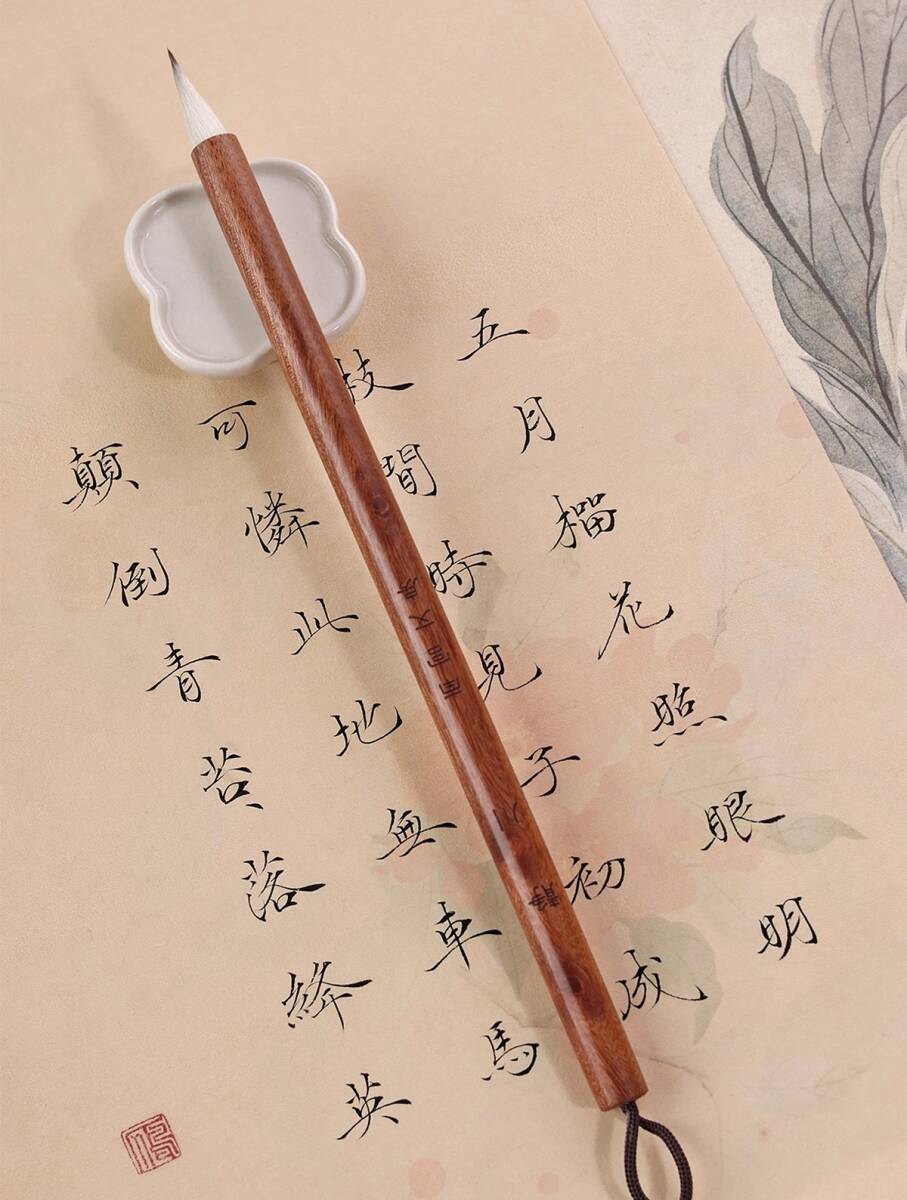 五月榴花照眼明
枝間時見子初成
可憐此地無車馬
顛倒青苔落絳英
静川
南宫文房